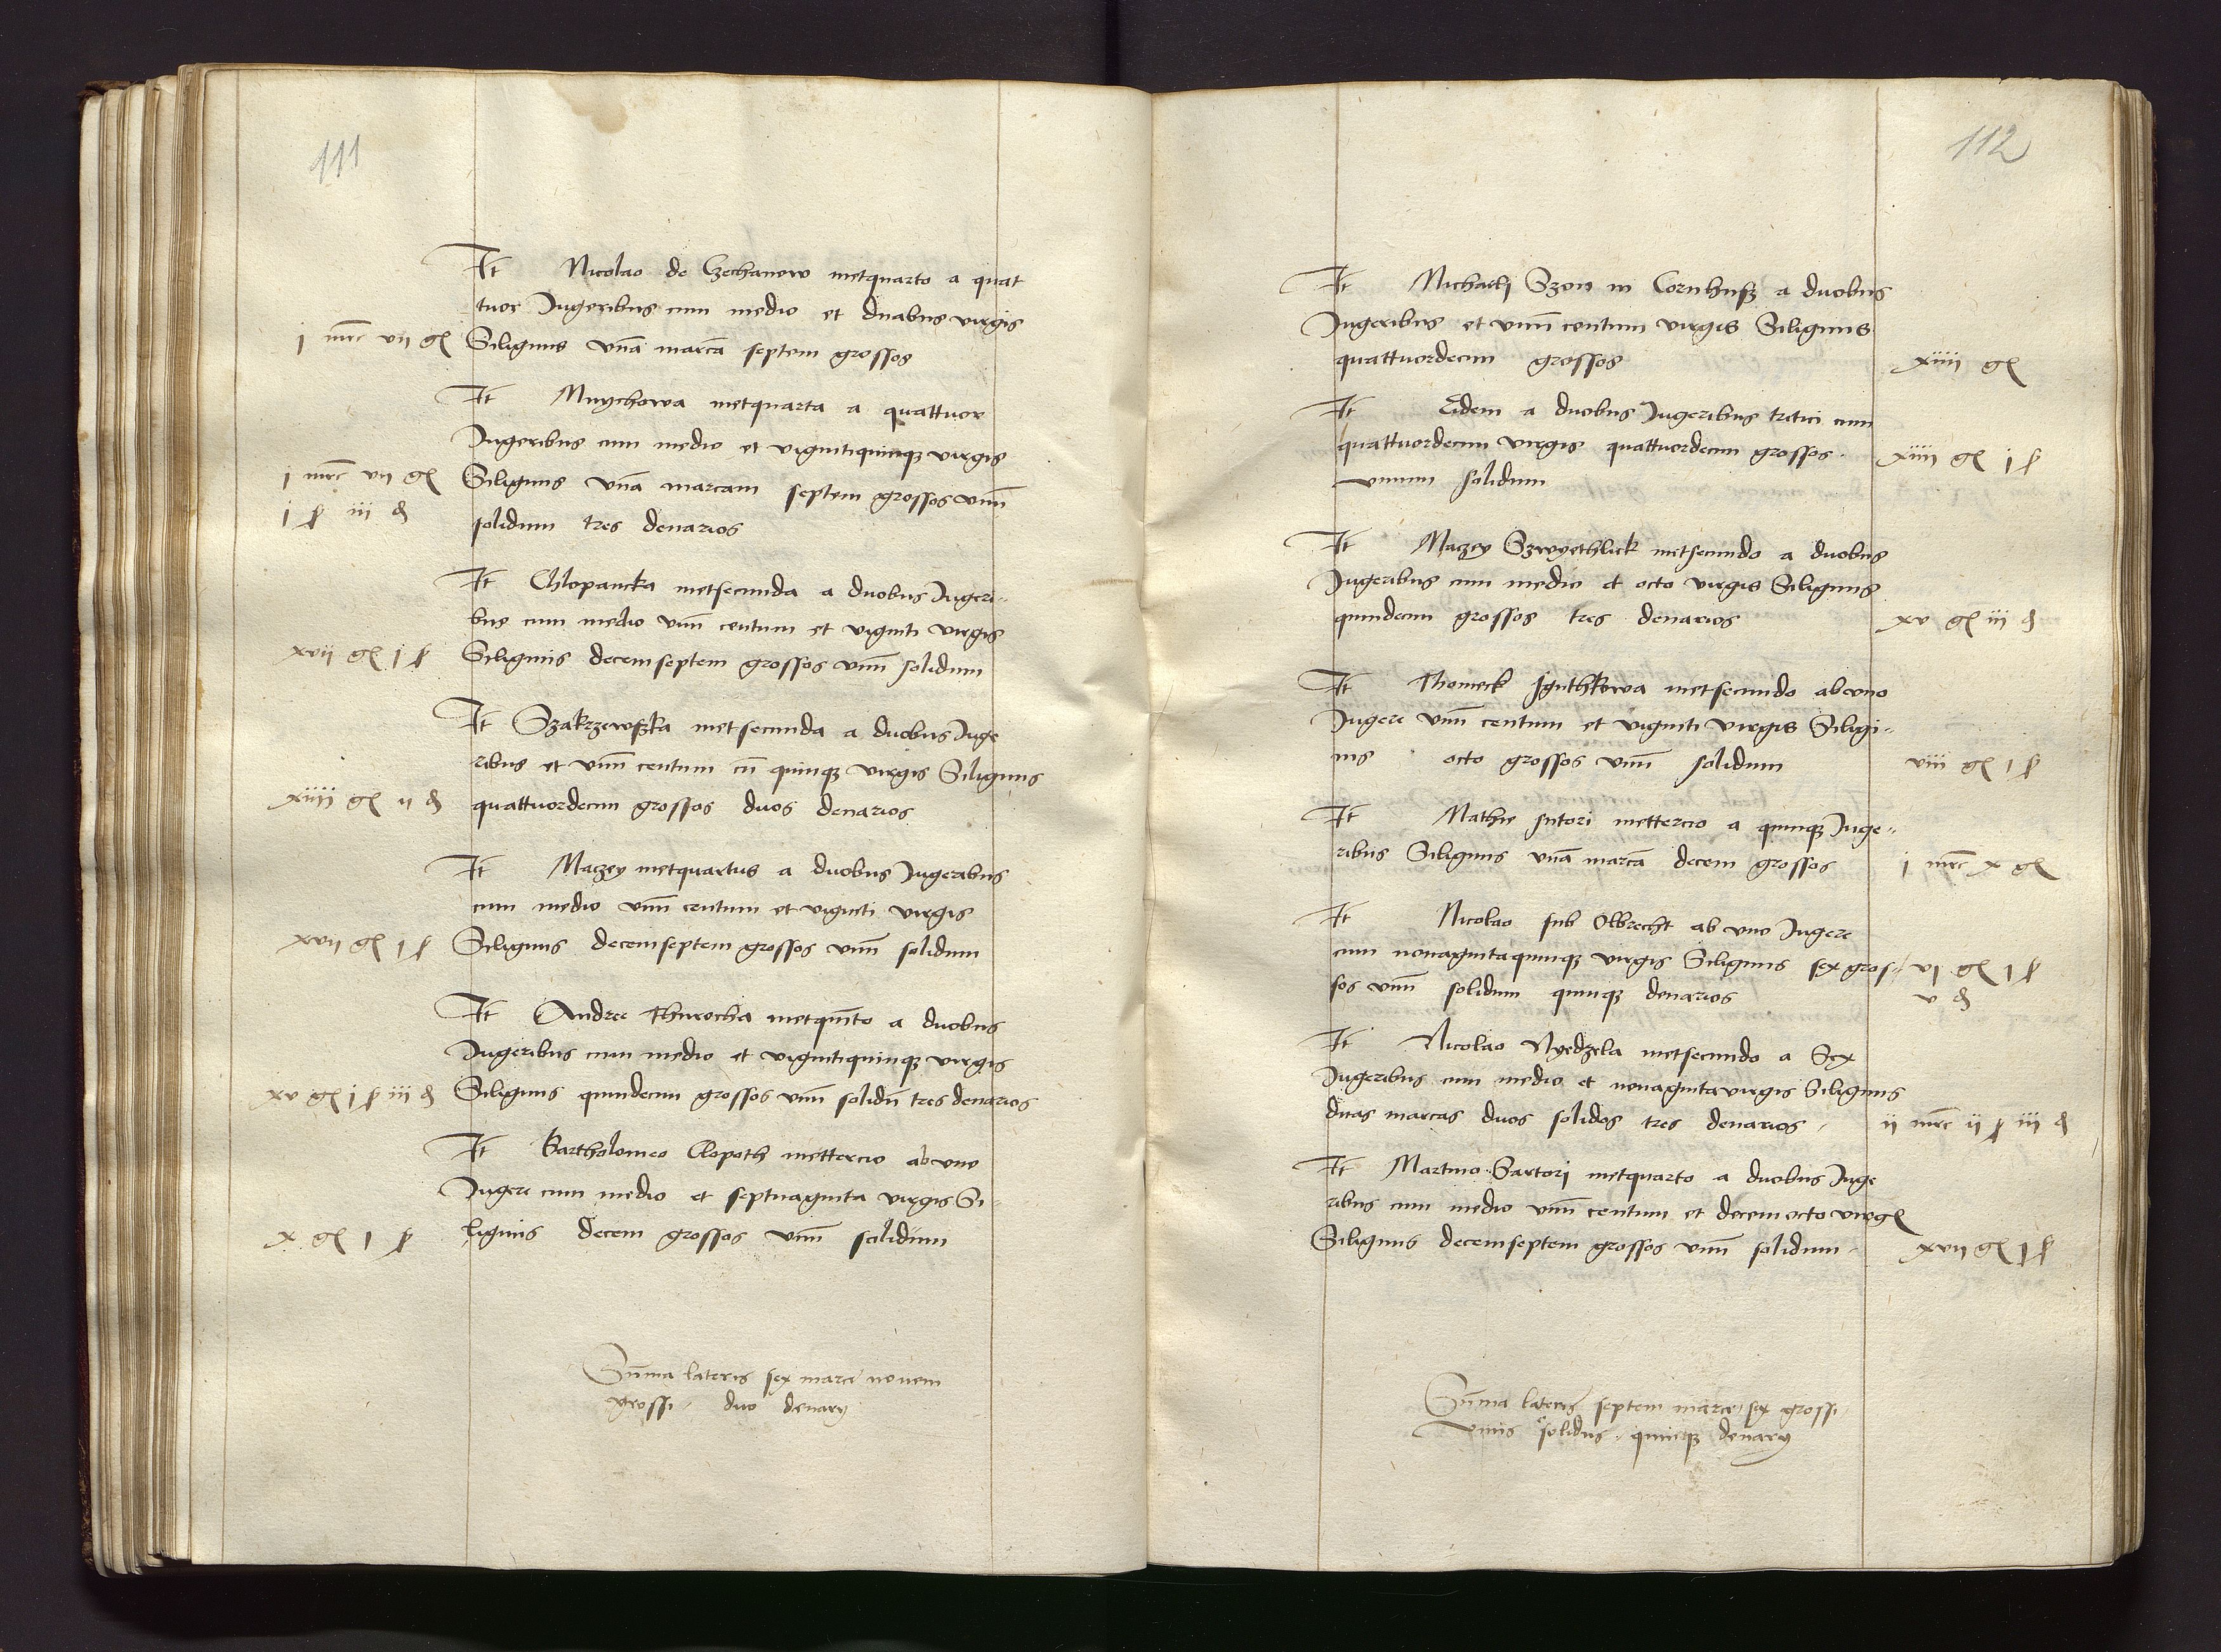 111
It Nicolao de Czechanow metquarto a quat
tuor Jugeribus cum medio et duabus virgis
j mrc vij gl Siliginis vnā marcā septem grossos
It Mnychowa metquarta a quattuor
Jugeribus cum medio et vigintiquinqz virgis
j mrc vij gl Siliginis vnā marcam septem grossos vnū
j ß iii d solidum tres denarios
It Chlopancka metsecunda a duobus Jugeri-
bus cum medio vnū centum et viginti virgis
xvij gl j ß Siliginis decemseptem grossos vnū solidum
It Szakrzewska metsecunda a duobus Juge
ribus et vnū centum cū quinqz virgis Siliginis
xiiii gl ij d quattuordecim grossos duos denarios
It Maczey metquartus a duobus Jugeribus
cum medio vnū centum et viginti virgis
xvij gl j ß Siliginis decemseptem grossos vnū solidum
It Andree Thurocha metquīto a duobus
Jugeribus cum medio et vigintiquinqz virgis
xv gl j ß iii d Siliginis quindecim grossos vnū solidū tres denarios
It Bartholomeo Clopoth mettercio ab vno
Jugere cum medio et septuaginta virgis Si-
x gl j ß liginis decem grossos vnū solidum
Sūma lateris sex marce novem
grossi duo denary
112
It Michaeli Szon in Cornhusz a duobus
Jugeribus et vnū centum virgis Siliginis
quattuordecim grossos xiiii gl
It Eidem a duobus Jugeribus tritici cum
quattuordecim virgis quattuordecim grossos xiiii gl j ß
vnum solidum
It Maczey Szwyethlick metsecundo a duobus
Jugeribus cum medio et octo virgis Siliginis
quindecim grossos tres denarios xv gl iii d
It Thomeck Jguthkowa metsecundo ab vno
Jugere vnū centum et viginti virgis Siligi-
nis octo grossos vnū solidum viii gl j ß
It Mathie sutori mettercio a quinqz Juge-
ribus Siliginis vnā marcā decem grossos j mrc x gl
It Nicolao sub Olbrecht ab vno Jugere
cum nonagintaquinqz virgis Siliginis sex gros- vj gl j ß
sos vnū solidum quinqz denarios v d
It Nicolao Nyedzela metsecundo a Sex
Jugeribus cum medio et nonaginta virgis Siliginis
duas marcas duos solidos tres denarios ij mrc ij ß iii d
It Martino Sartori metquarto a duobus Juge
ribus cum medio vnū centum et decemocto virgl
Siliginis decemseptem grossos vnū solidum xvij gl j ß
Sūma lateris septem marce sex grossi
vnus solidus quinqz denary